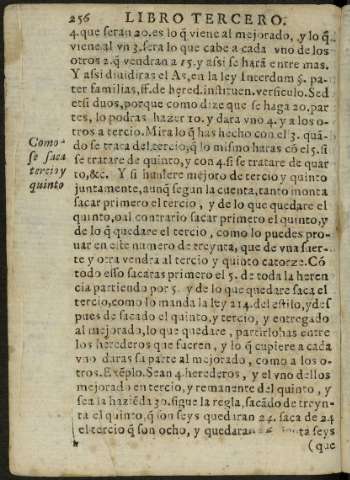 256 LIBRO TERCERO.
4. que seran 20. es lo q̃ viene al mejorado, y lo q̃
viene al vn 3. sera lo que cabe a cada vno de los
otros 2. q̃ vendran a 15. y assi se harã entre mas.
Y assi diuidiras el As, en la ley Interdum §. pa-
ter familias, ff. de hered. instituen. versiculo. Sed
etsi duos, porque como dize que se haga 20. par
tes, lo podras hazer 10. y dara vno 4. y a los o-
tros a tercio. Mira lo q̃ has hecho con el 3. quã-
do se trata del tercio, q̃ lo mismo haras cõ el 5. si
se tratare de quinto, y con 4. si se tratare de quar
to, &c. Y si huuiere mejora de tercio y quinto
juntamente, aunq̃ segun la cuenta, tanto monta
sacar primero el tercio, y de lo que quedare el
quinto, o al contrario sacar primero el quinto, y
de lo q̃ quedare el tercio, como lo puedes pro-
uar en este numero de treynta, que de vna suer-
te y otra vendra al tercio y quinto catorze. Cõ
todo esso sacaras primero el 5. de toda la heren
cia partiendo por 5. y de lo que quedare saca el
tercio, como lo manda la ley 214. del estilo, y des
pues de sacado el quinto, y tercio, y entregado
al mejorado, lo que quedare, partirlo has entre
los herederos que fueren, y lo q̃ cupiere a cada
vno daras sa parte al mejorado, como a los o-
tros. Exẽplo. Sean 4. herederos, y el vno dellos
mejorado en tercio, y remanente del quinto, y
sea la haziẽda 30. sigue la regla, sacãdo de treyn-
ta el quinto, q̃ son seys quedaran 24. saca de 24
el tercio q̃ son ocho, y quedaran seys
(que
Como
se saca
tercio y
quinto